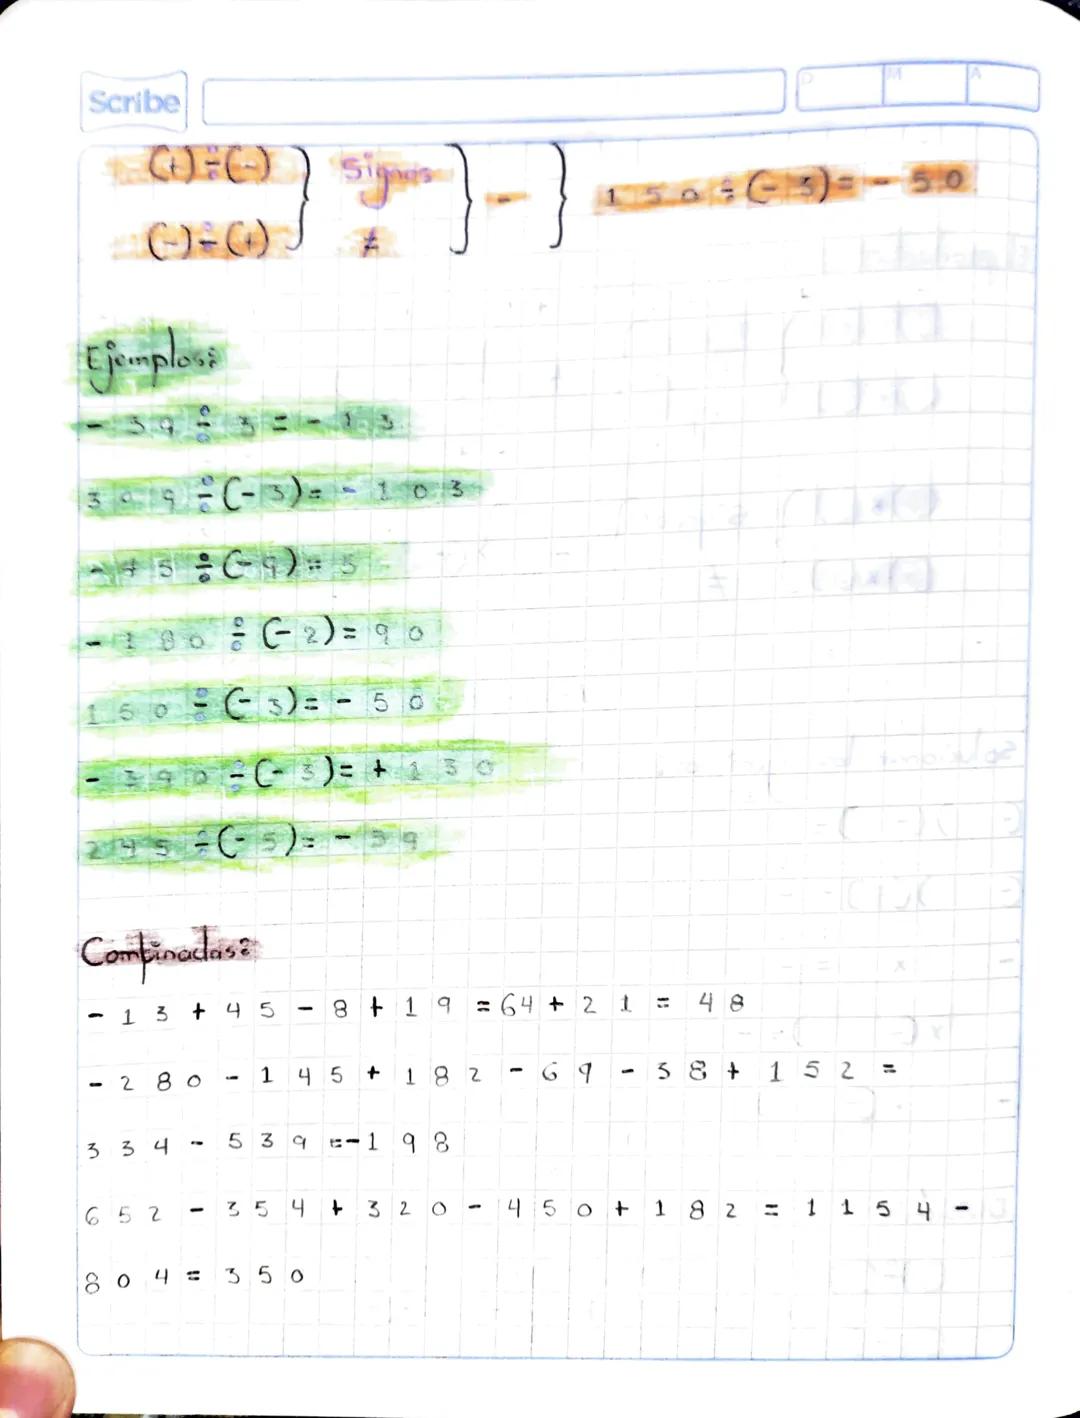 Scribe
D M A
(+)÷(-) } Signos } - } 150÷(-3)=-50
(-)÷(+) ≠
Ejemplos:
-39÷3=-13
309÷(-3)=-103
-45÷(-9)=5
-180÷(-2)=90
150÷(-3)=-50
-390÷(-3)=+130
245÷(-5)=-39
Combinadas:
-13+45-8+19=64+21=48
-280-145+182-69-38+152=
334-539=-198
652-354+320-450+182=1154-
804=350